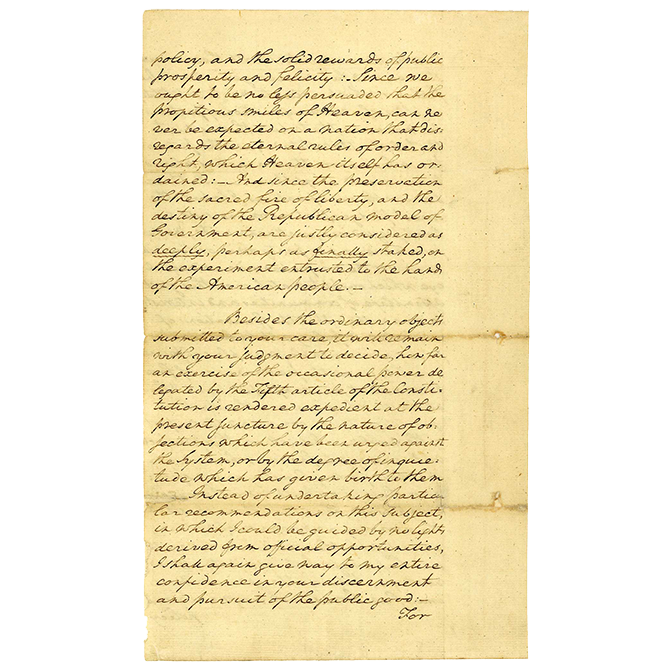 policy, and the solid rewards of public
prosperity and felicity :- Since we
ought to be no less persuaded that the
propitious smiles of Heaven, can ne
ver be expected on a nation that dis
regards the eternal rules of order and
right, which Heaven itself has or-
dained:- And since the preservation
of the sacred fire of liberty, and the
destiny of the Republican model of
Government, are justly considered as
deeply, perhaps as finally staked, on
the experiment entrusted to the hands
of the American people.-
Besides the ordinary objects
submitted to your care, it will remain
with your judgment to decide, how far
an exercise of the occasional power de
legated by the Fifth article of the Consti-
tution is rendered expedient at the
present juncture by the nature of ob-
jections which have been urged against
the System, or by the degree of inquie-
tude which has given birth to them
Instead of undertaking particu
lar recommendations on this subject,
in which I could be guided by no lights
derived from official opportunities,
I shall again give way to my entire
confidence in your discernment
and pursuit of the public good:-
For